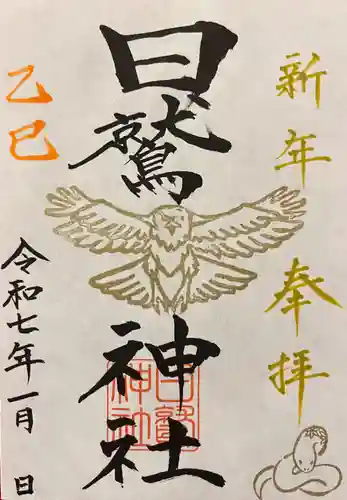 新年
奉拝
日鷲神社
日鷲
神社
乙巳
令和七年一月 日